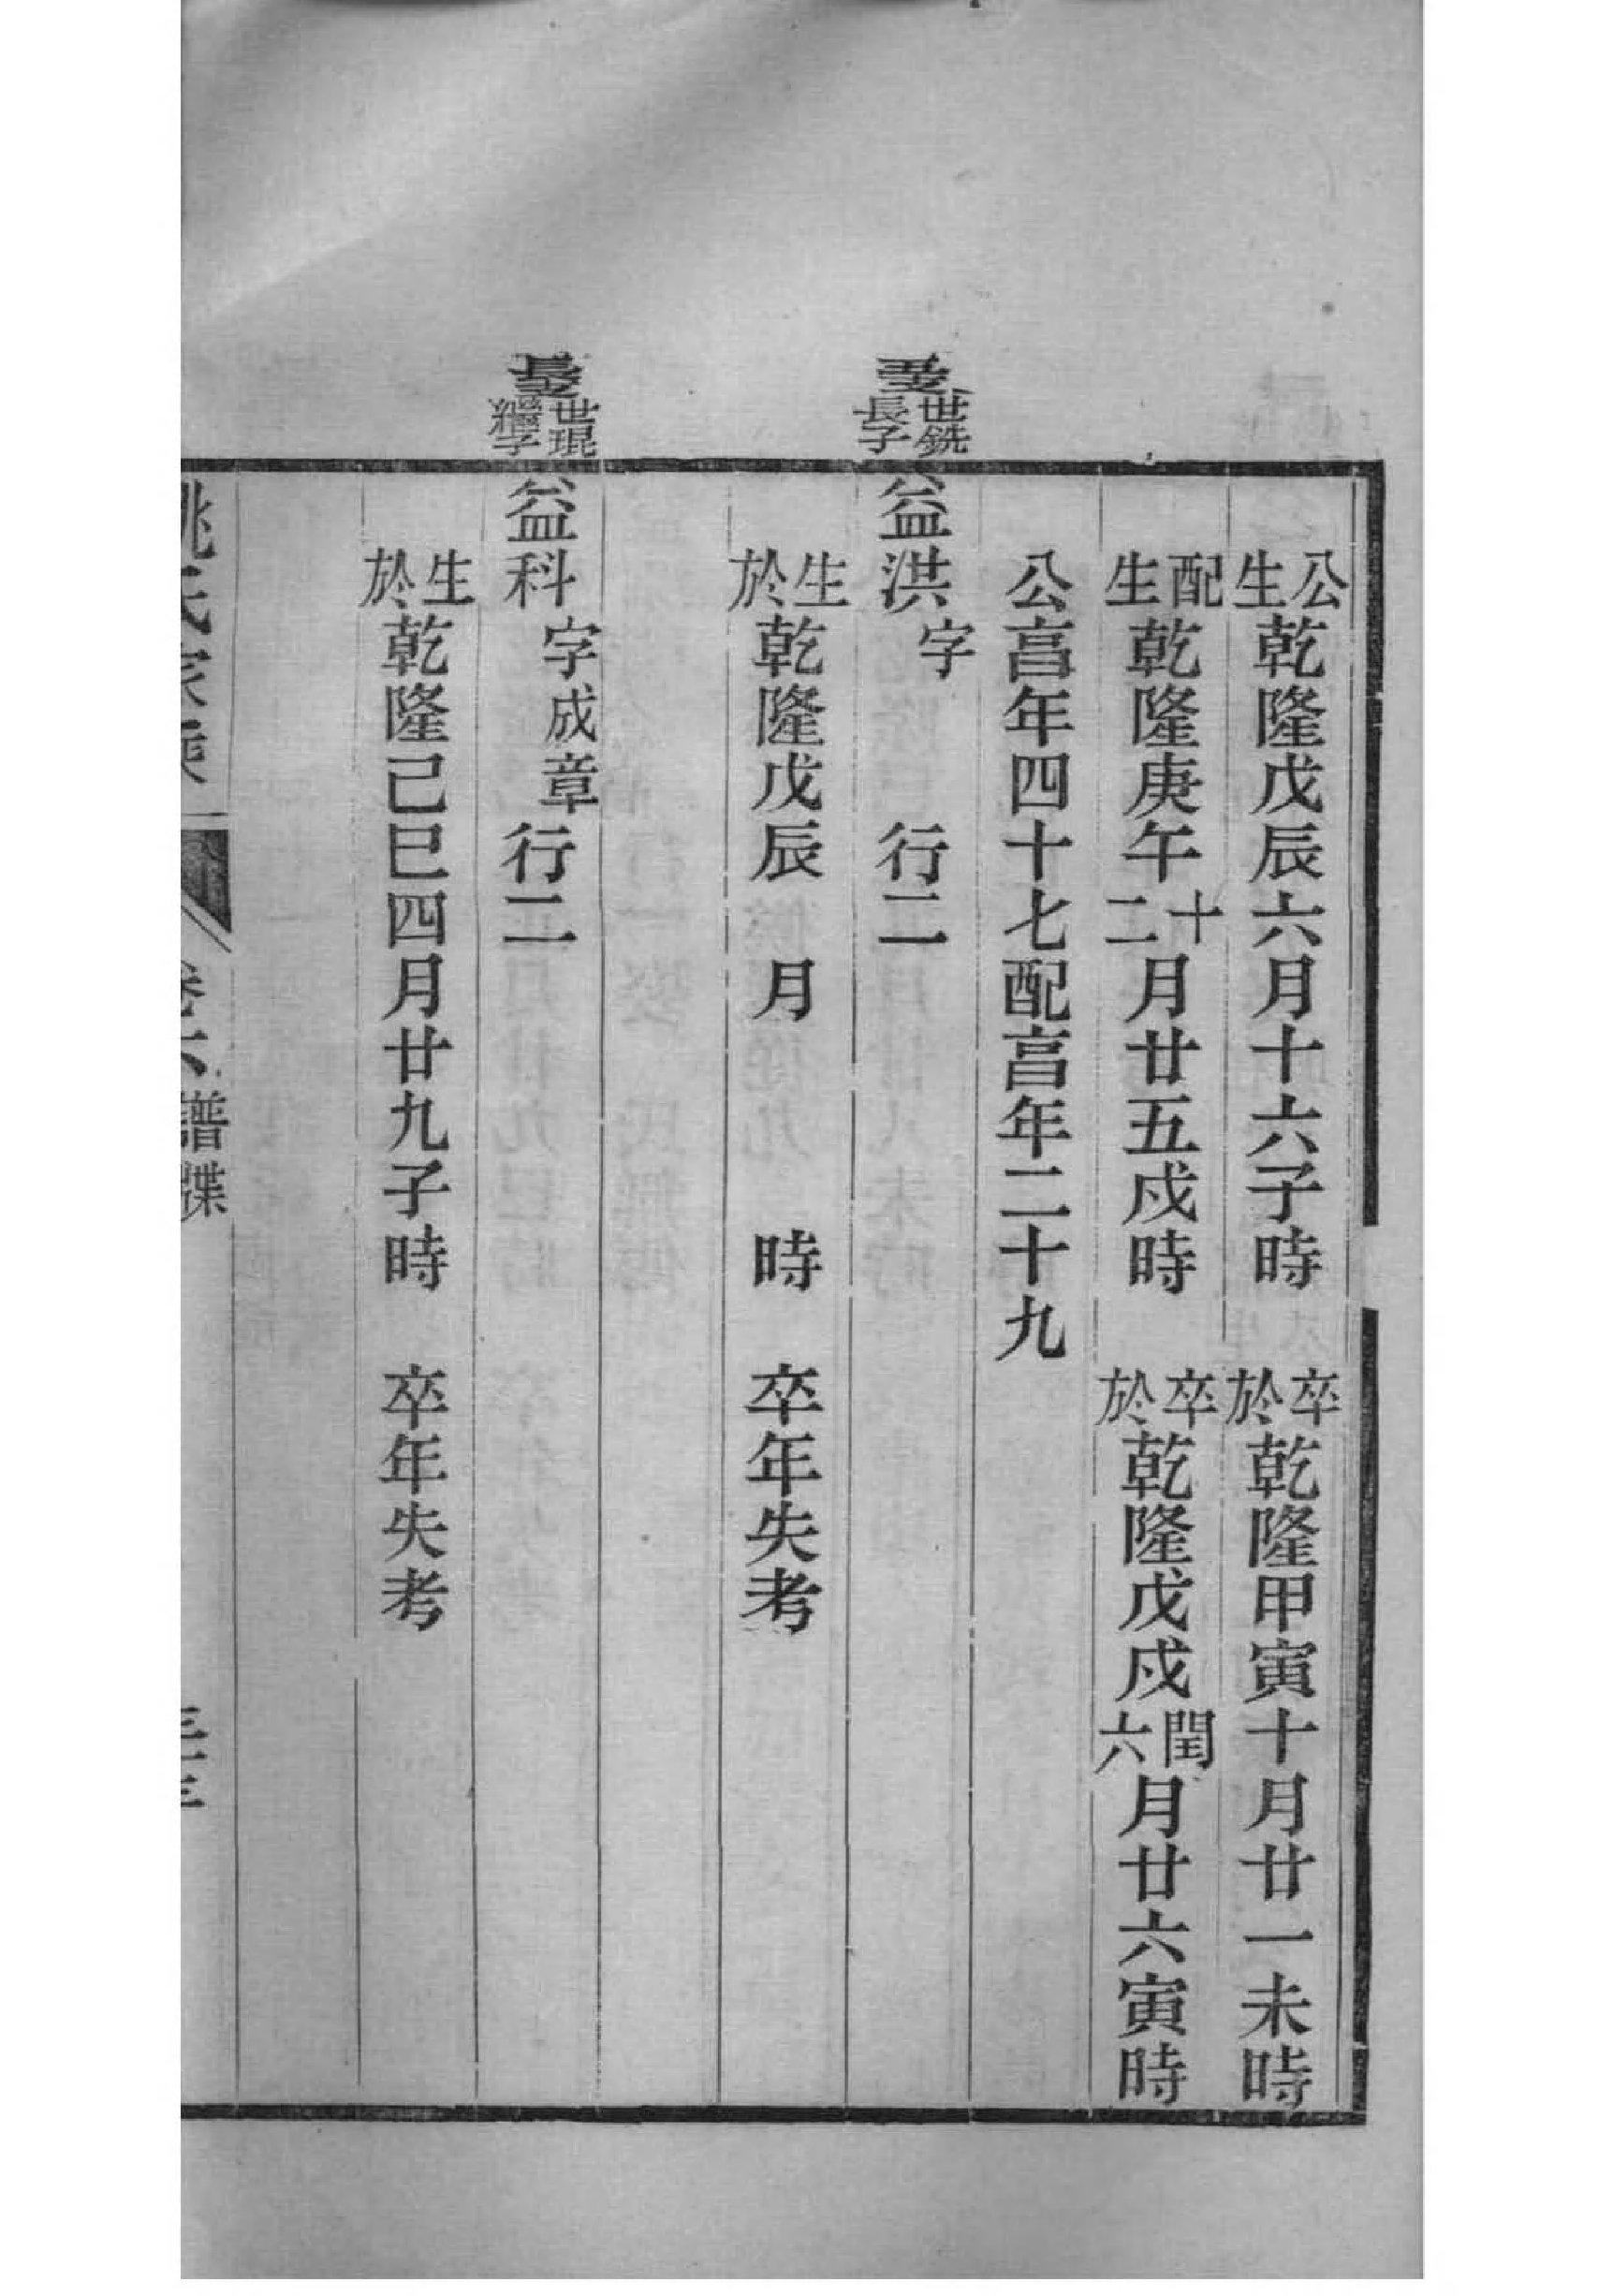 公生乾隆戊辰六月十六子時 卒於乾隆甲寅十月廿一未時
配生乾隆庚午十二月廿五戌時 卒於乾隆戊戌閏六月廿六寅時
公亯年四十七配亯年二十九
世銑長子
益洪字 行二
生於乾隆戊辰 月 時 卒年失考
長支世琨繼子
益科字成章行二
生於乾隆己巳四月廿九子時 卒年失考
姚氏家乘 卷六 譜牒